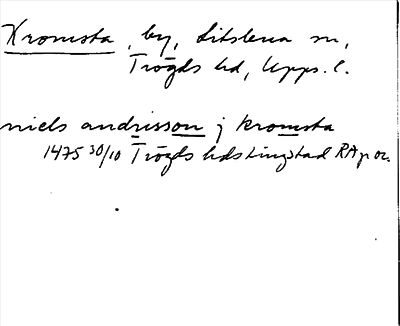 Kromsta, by, Litslena sn,
Trögds hd, Upps. l.
niels andrisson j kromsta
1475 30/10 Trögds hds tingstad RA p or.